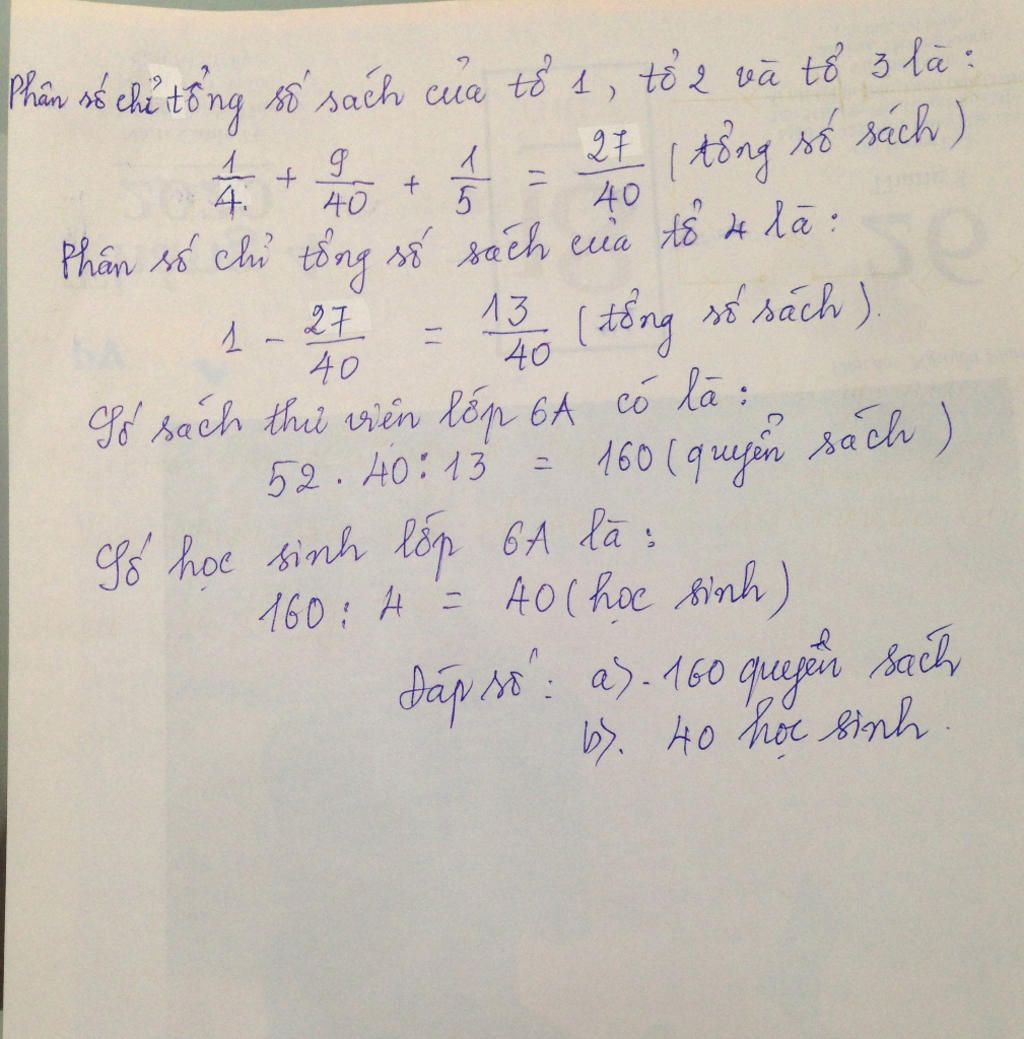 Phân số chỉ tổng số sách của tổ 1, tổ 2 và tổ 3 là:
1/4 + 9/40 + 1/5 = 27/40 (tổng số sách)
Phân số chỉ tổng số sách của tổ 4 là:
1 - 27/40 = 13/40 (tổng số sách).
Số sách thư viện lớp 6A có là:
52 . 40 : 13 = 160 (quyển sách)
Số học sinh lớp 6A là:
160 : 4 = 40 (học sinh)
Đáp số: a). 160 quyển sách
b). 40 học sinh.